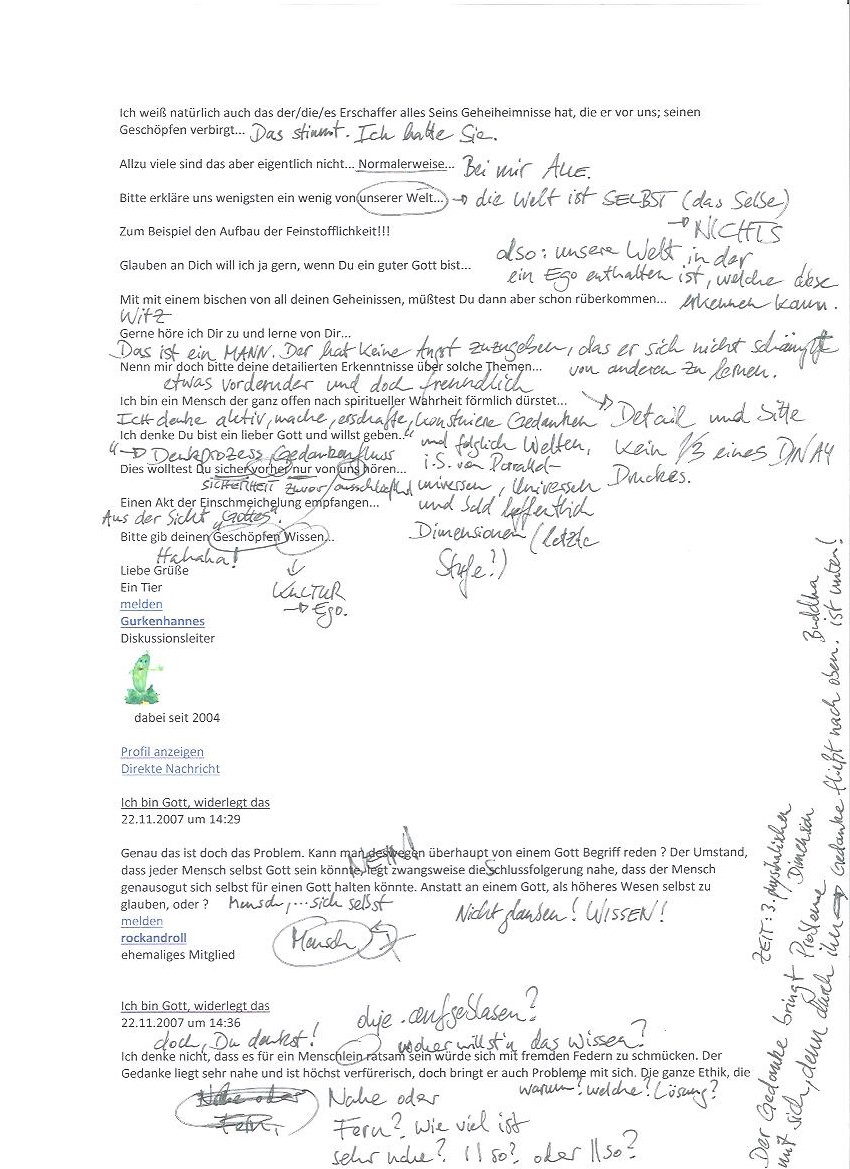 Ich weiß natürlich auch das der/die/es Erschaffer alles Seins Geheiheimnisse hat, die er vor uns; seinen
Geschöpfen verbirgt... Das stimmt. Ich hatte Sie.
Allzu viele sind das aber eigentlich nicht... Normalerweise... Bei mir ALLE.
Bitte erkläre uns wenigsten ein wenig von unserer Welt... → die Welt ist SELBST (das Selbe)
→ NICHTS
Zum Beispiel den Aufbau der Feinstofflichkeit!!!
also: unsere Welt in der
Glauben an Dich will ich ja gern, wenn Du ein guter Gott bist...
ein Ego enthalten ist, welche diese
Mit mit einem bischen von all deinen Geheinissen, müßtest Du dann aber schon rüberkommen... erkennen kann.
WITZ
Gerne höre ich Dir zu und lerne von Dir...
Das ist ein MANN. Der hat keine Angst zuzugeben, das er sich nicht schämpfte
Nenn mir doch bitte deine detailierten Erkenntnisse über solche Themen... von anderen zu lernen.
etwas vordernder und doch freundlich
Ich bin ein Mensch der ganz offen nach spiritueller Wahrheit förmlich dürstet...
Ich denke aktiv, mache, erschaffe, konstruiere Gedanken → Detail und Sitte
Ich denke Du bist ein lieber Gott und willst geben... und folglich Welten, kein 1/3 eines DNA4
"→ Denkprozess Gedankenfluss
Dies wolltest Du sicher vorher nur von uns hören... i.S. von Parallel- Druckes.
SICHERHEIT zuvor/ausschließlich universen, Universen
Einen Akt der Einschmeichelung empfangen... und
Aus der Sicht "Gottes".
Bitte gib deinen Geschöpfen Wissen... Dimensionen (letzte
Hahaha! Stufe?)
Liebe Grüße
Ein Tier KULTUR
melden → Ego.
Gurkenhannes
Diskussionsleiter
dabei seit 2004
Profil anzeigen
Direkte Nachricht
Ich bin Gott, widerlegt das
22.11.2007 um 14:29
NEIN!
Genau das ist doch das Problem. Kann man deswegen überhaupt von einem Gott Begriff reden ? Der Umstand,
dass jeder Mensch selbst Gott sein könnte, legt zwangsweise die Schlussfolgerung nahe, dass der Mensch
genausogut sich selbst für einen Gott halten könnte. Anstatt an einem Gott, als höheres Wesen selbst zu
glauben, oder ? Mensch,... sich selbst
Nicht glauben! WISSEN!
melden
rockandroll Mensch
ehemaliges Mitglied
Ich bin Gott, widerlegt das
22.11.2007 um 14:36 aufgeblasen?
doch, Du denkst! woher willst'n das wissen?
Ich denke nicht, dass es für ein Menschlein ratsam sein würde sich mit fremden Federn zu schmücken. Der
Gedanke liegt sehr nahe und ist höchst verfürerisch, doch bringt er auch Probleme mit sich. Die ganze Ethik, die
warum? welche? Lösung?
Nahe oder Nahe oder
Fern. Fern? Wie viel ist
sehr nahe? || so? oder || so?
ZEIT: 3. physikalischer Dimension
Der Gedanke bringt Probleme Buddha
mit sich, denn durch ihn → Gedanke fließt nach oben. ist unten!